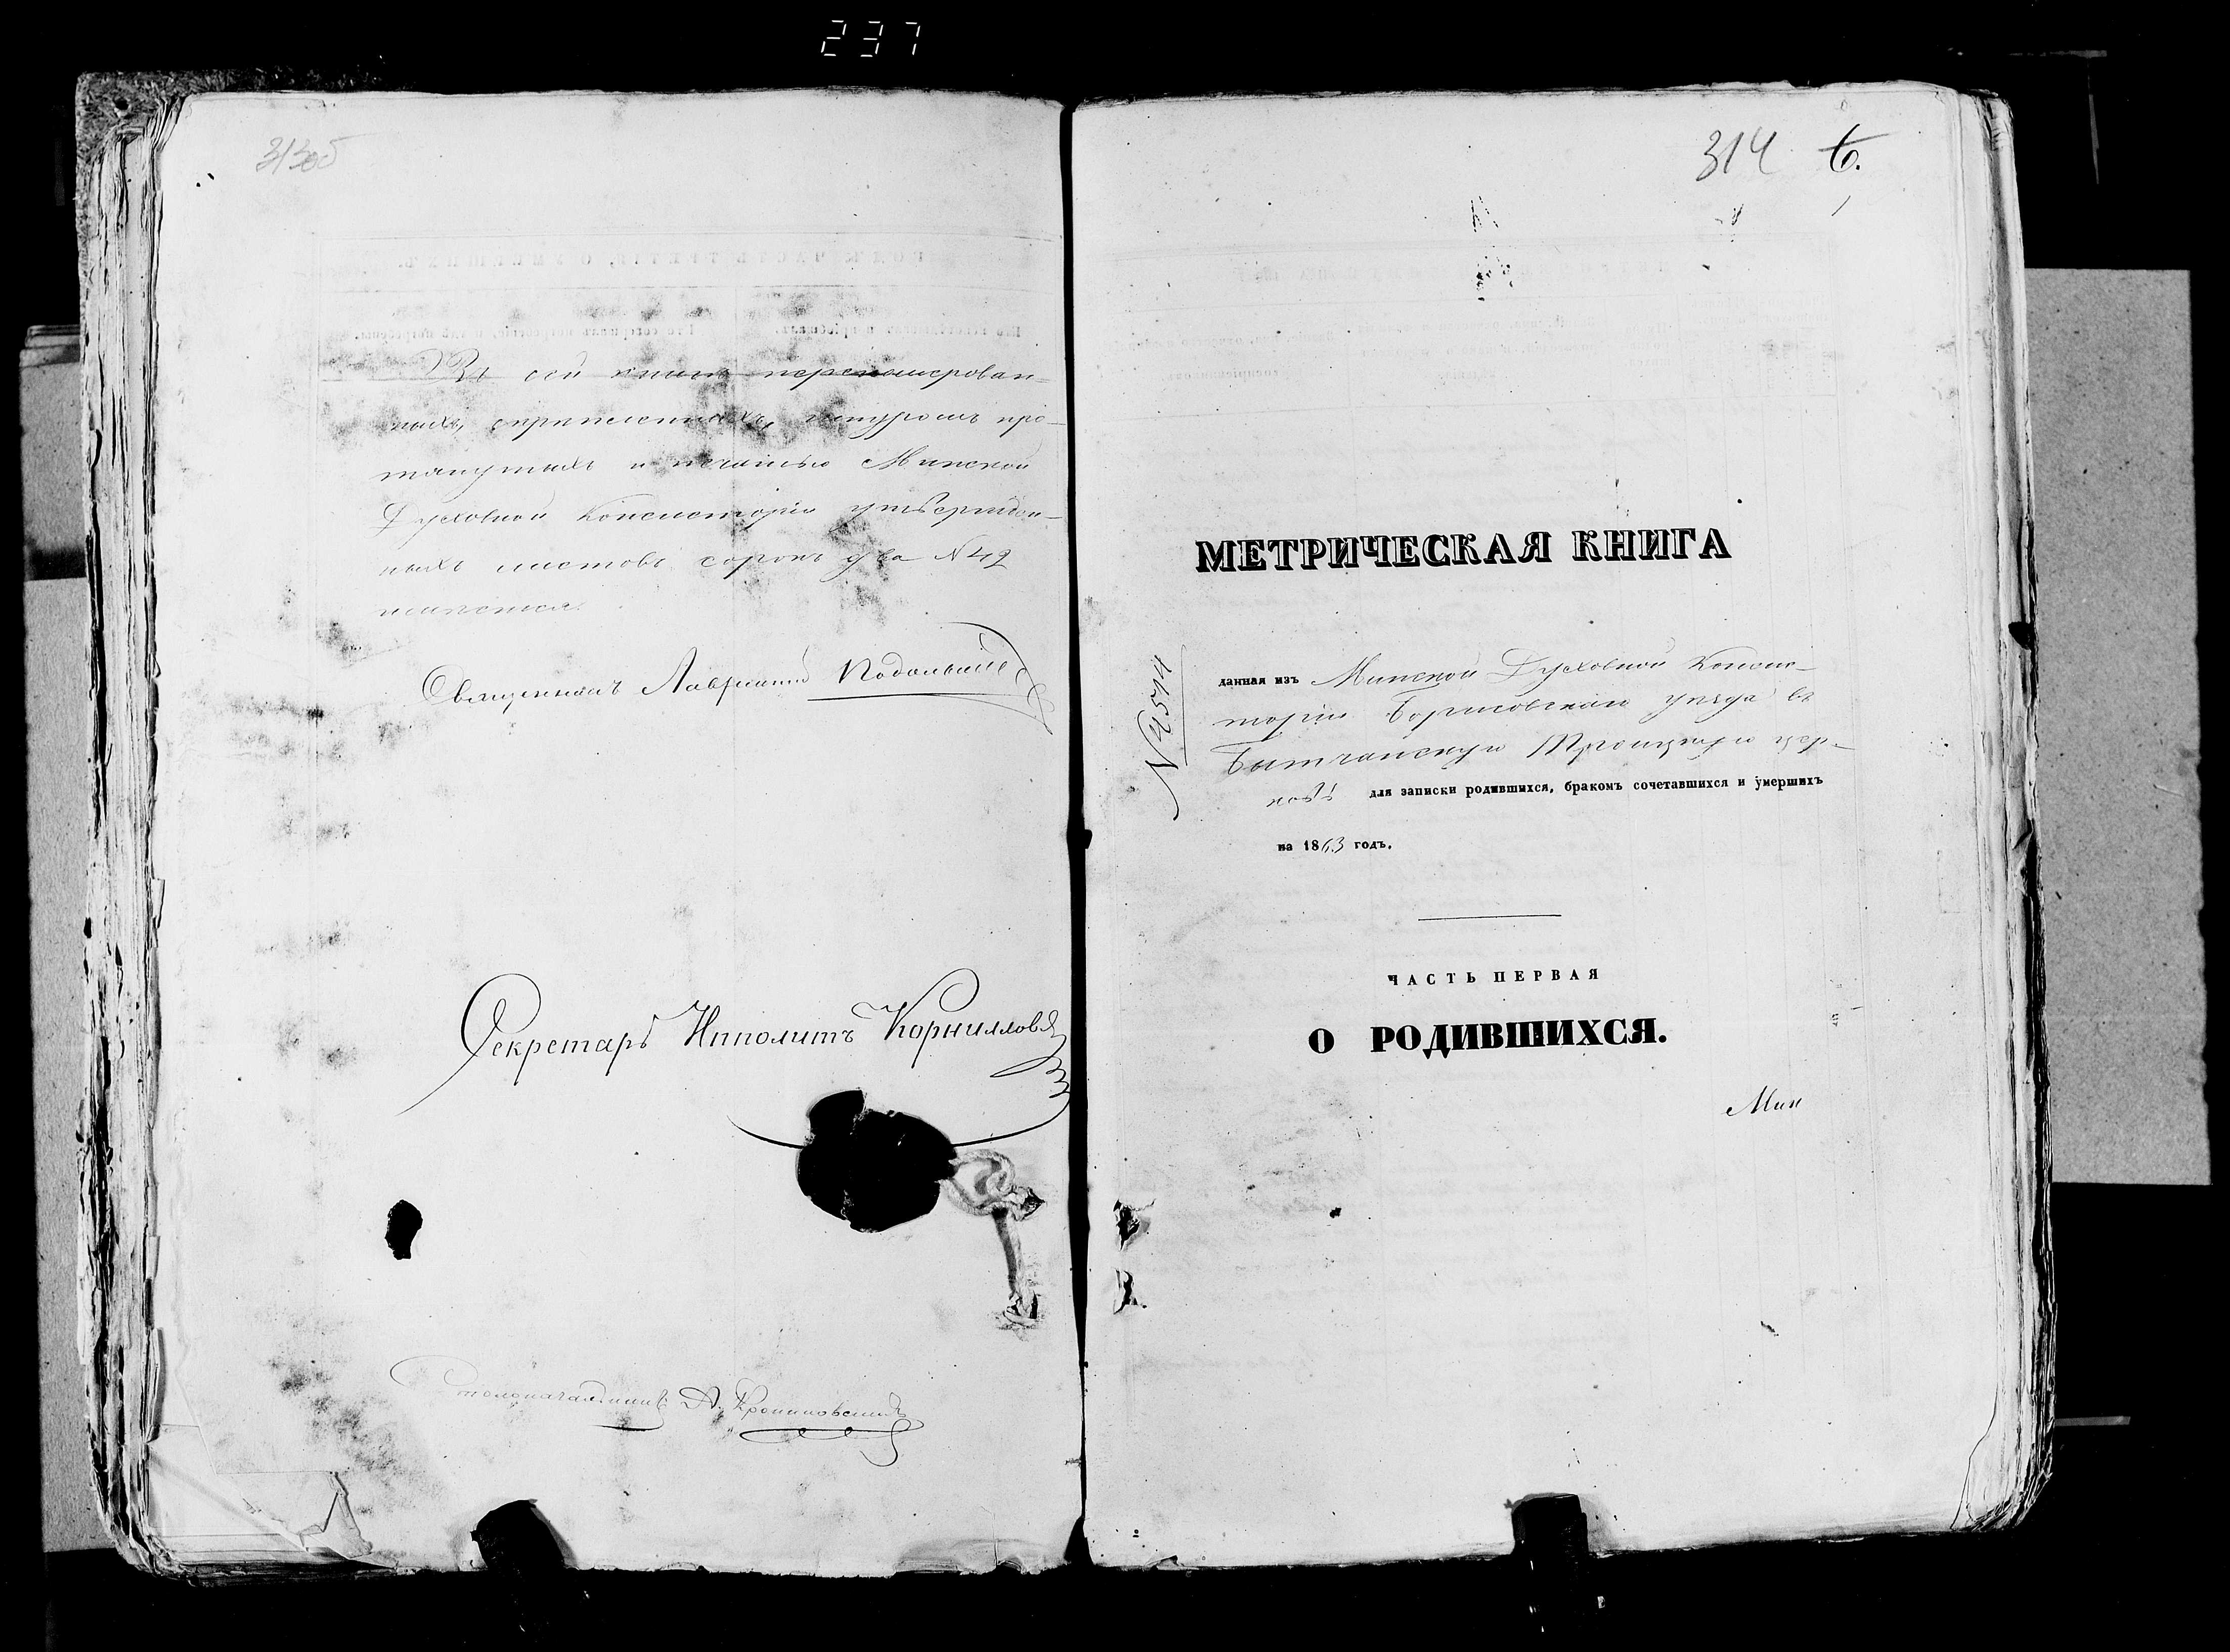 237
313об
Въ сей книгѣ перенумерован-
ныхъ, скрѣпленныхъ, шнуромъ про-
тянутыхъ и печатью Минской
Духовной Консисторіи утвержден-
ныхъ листовъ сорокъ два N 42
имѣется.
Священникъ Лаврентій
Секретарь Ипполитъ Корниловъ
Столоначальникъ А.
314 6.
МЕТРИЧЕСКАЯ КНИГА
N 4574
данная изъ Минской Духовной Консис-
торіи Борисовскаго уѣзда въ
Бытчанскую Троицкую цер-
ковь для записки родившихся, бракомъ сочетавшихся и умершихъ
на 1863 годъ.
ЧАСТЬ ПЕРВАЯ
О РОДИВШИХСЯ.
Мин